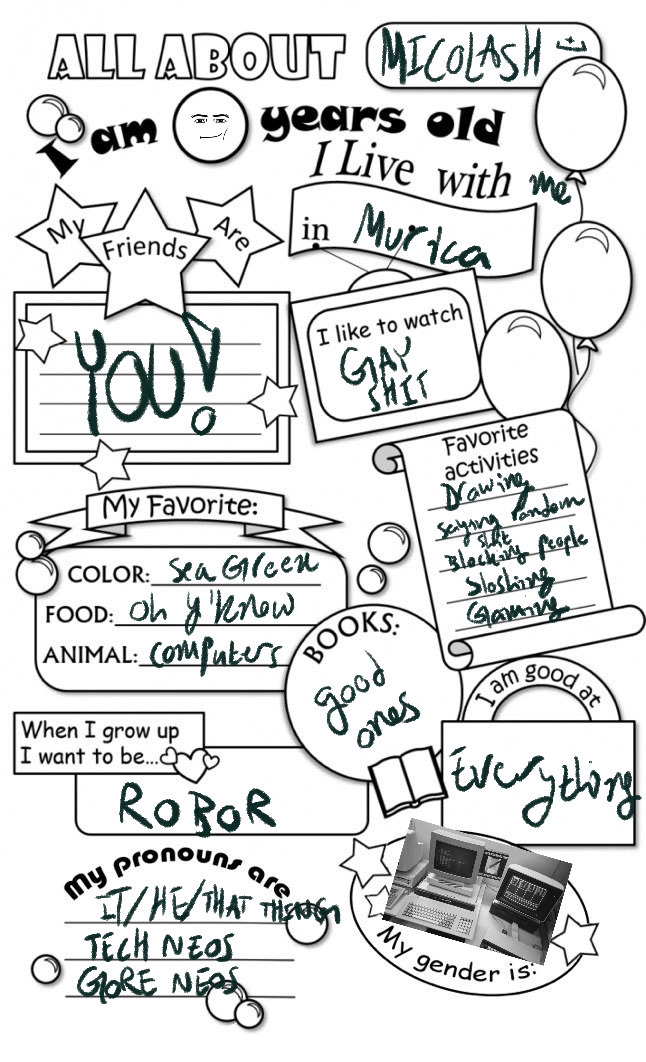 ALL ABOUT MICOLASH :)
I am years old
I Live with me
in Murica
My Friends Are
YOU!
I like to watch
GAY
SHIT
Favorite
activities
Drawing
saying random
shit
Blocking people
Sloshing
Gaming
My Favorite:
COLOR: sea Green
FOOD: oh y'know
ANIMAL: computers
BOOKS:
good
ones
I am good at
Everything
When I grow up
I want to be...
ROBOR
My pronouns are
IT/HE/THAT THING
TECH NEOS
GORE NEOS
My gender is: